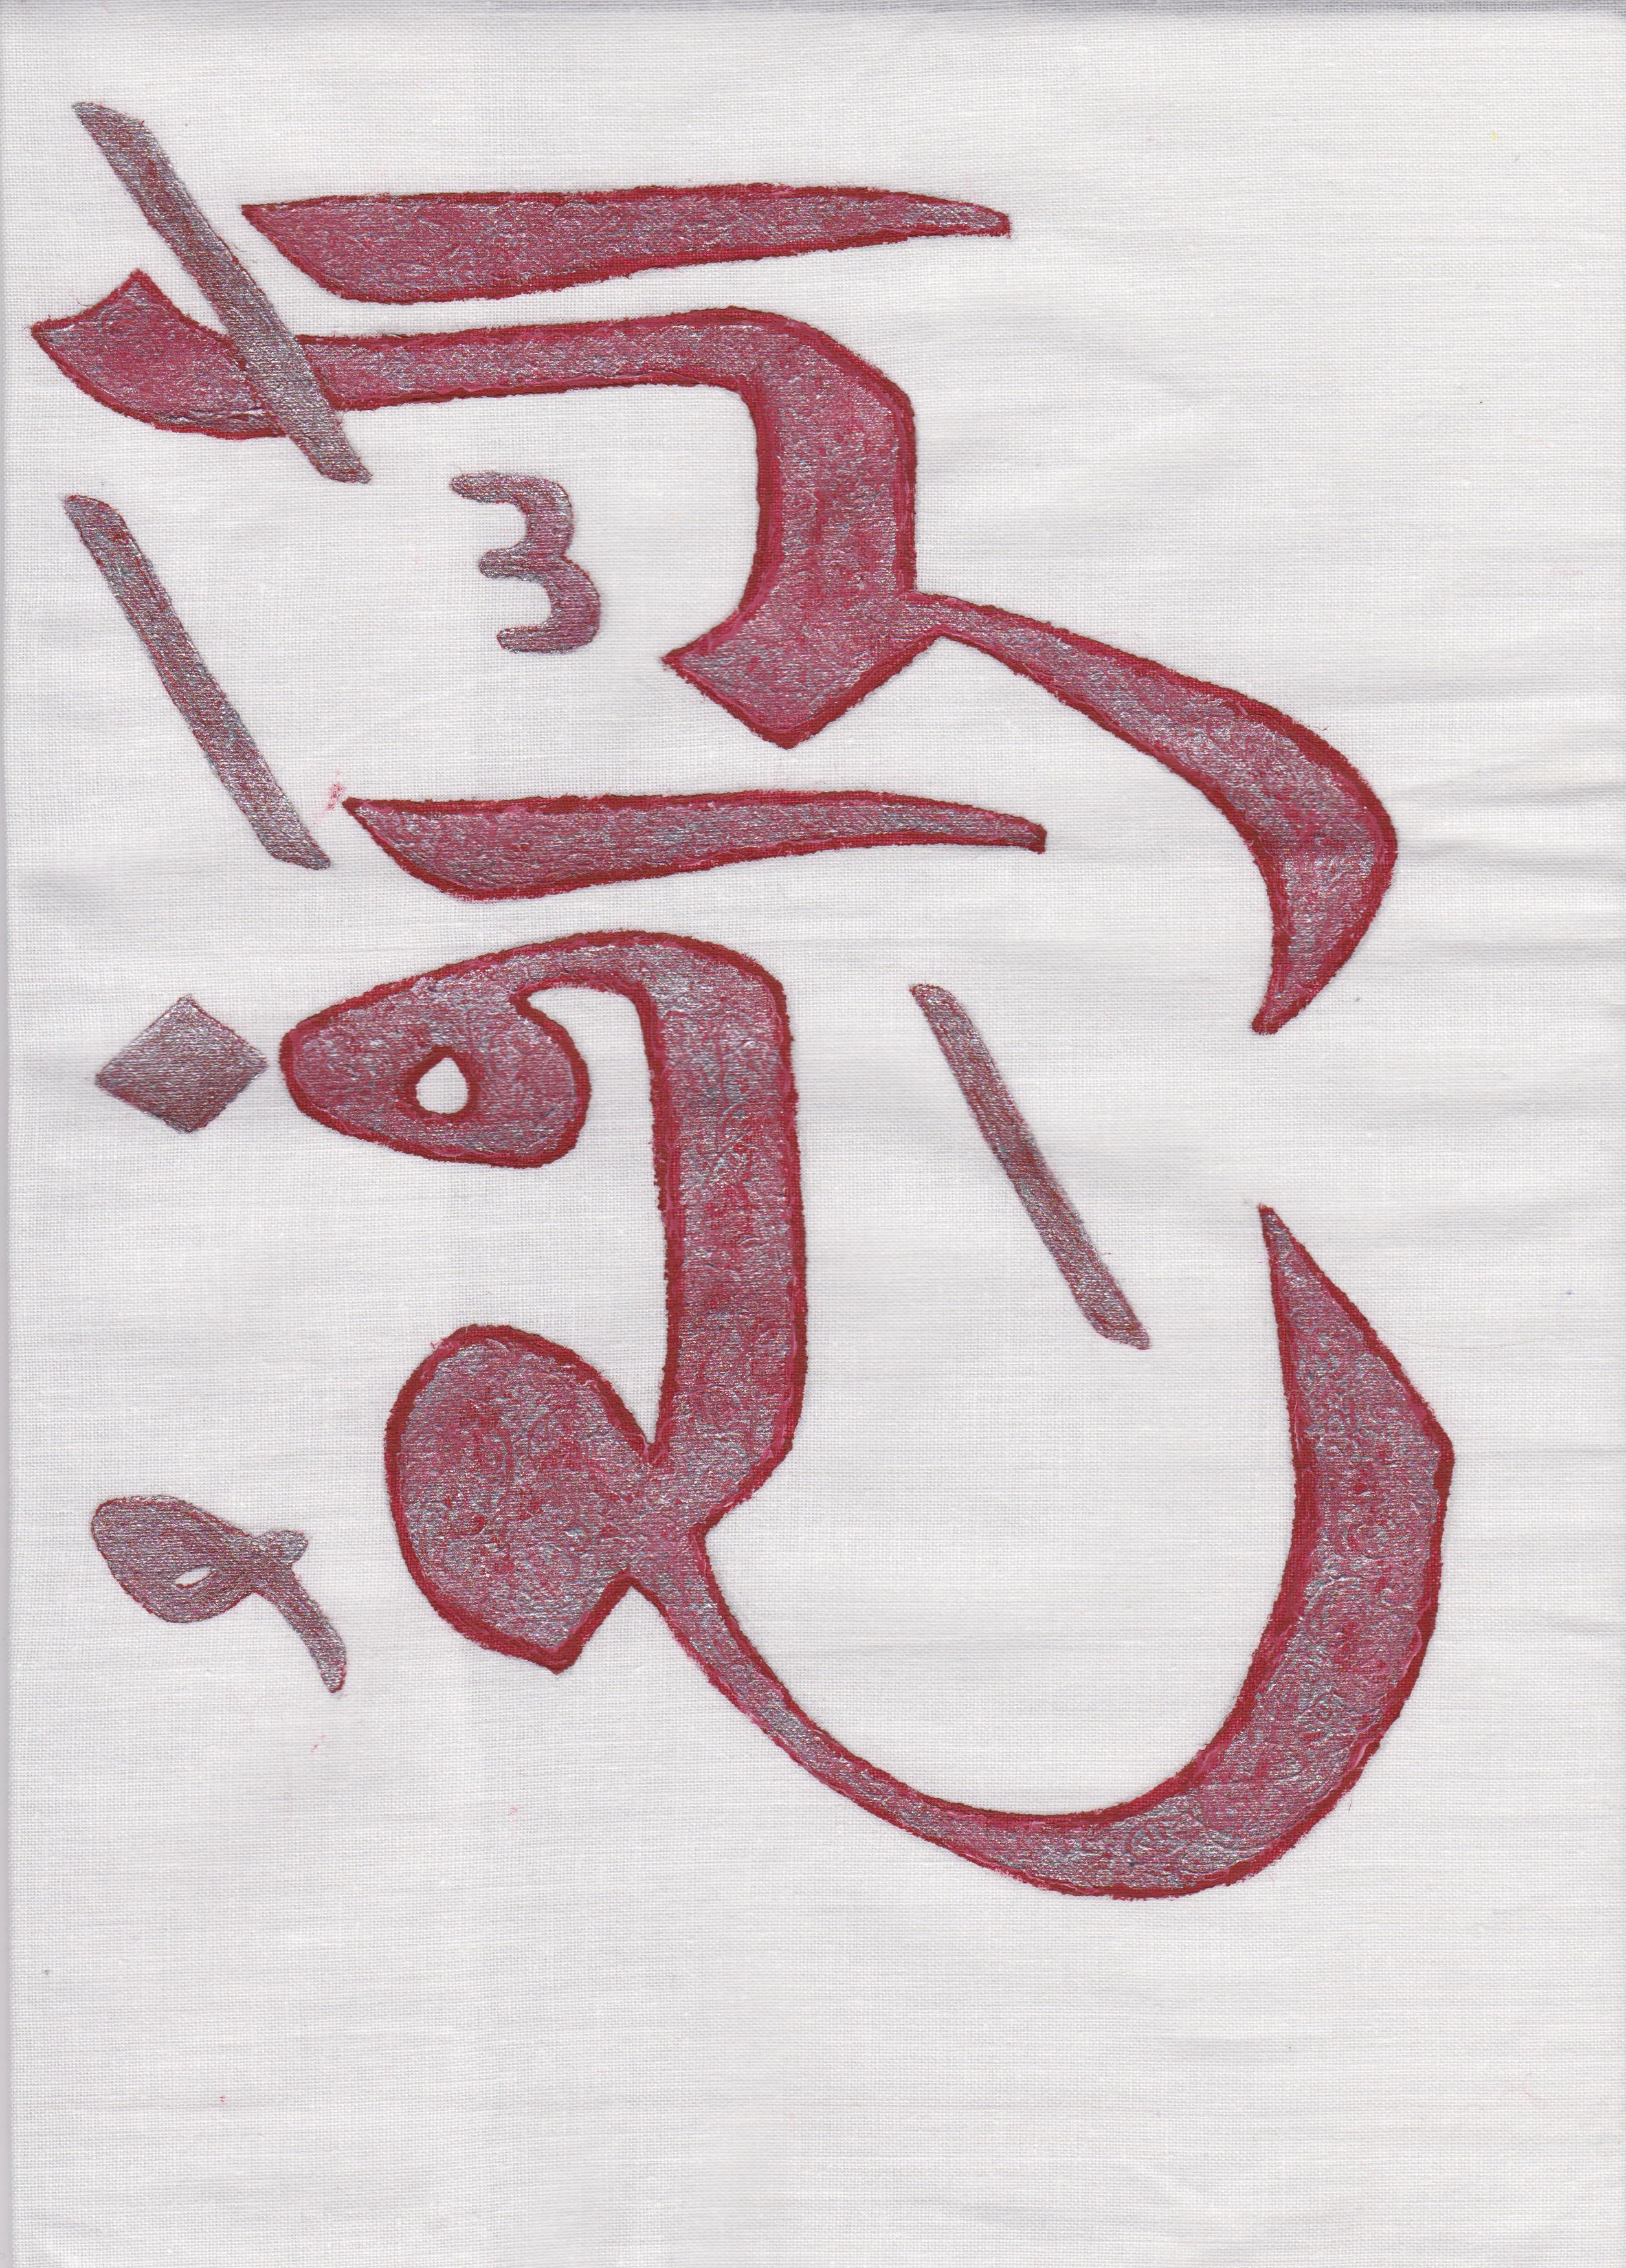 الَرَّافِعُ